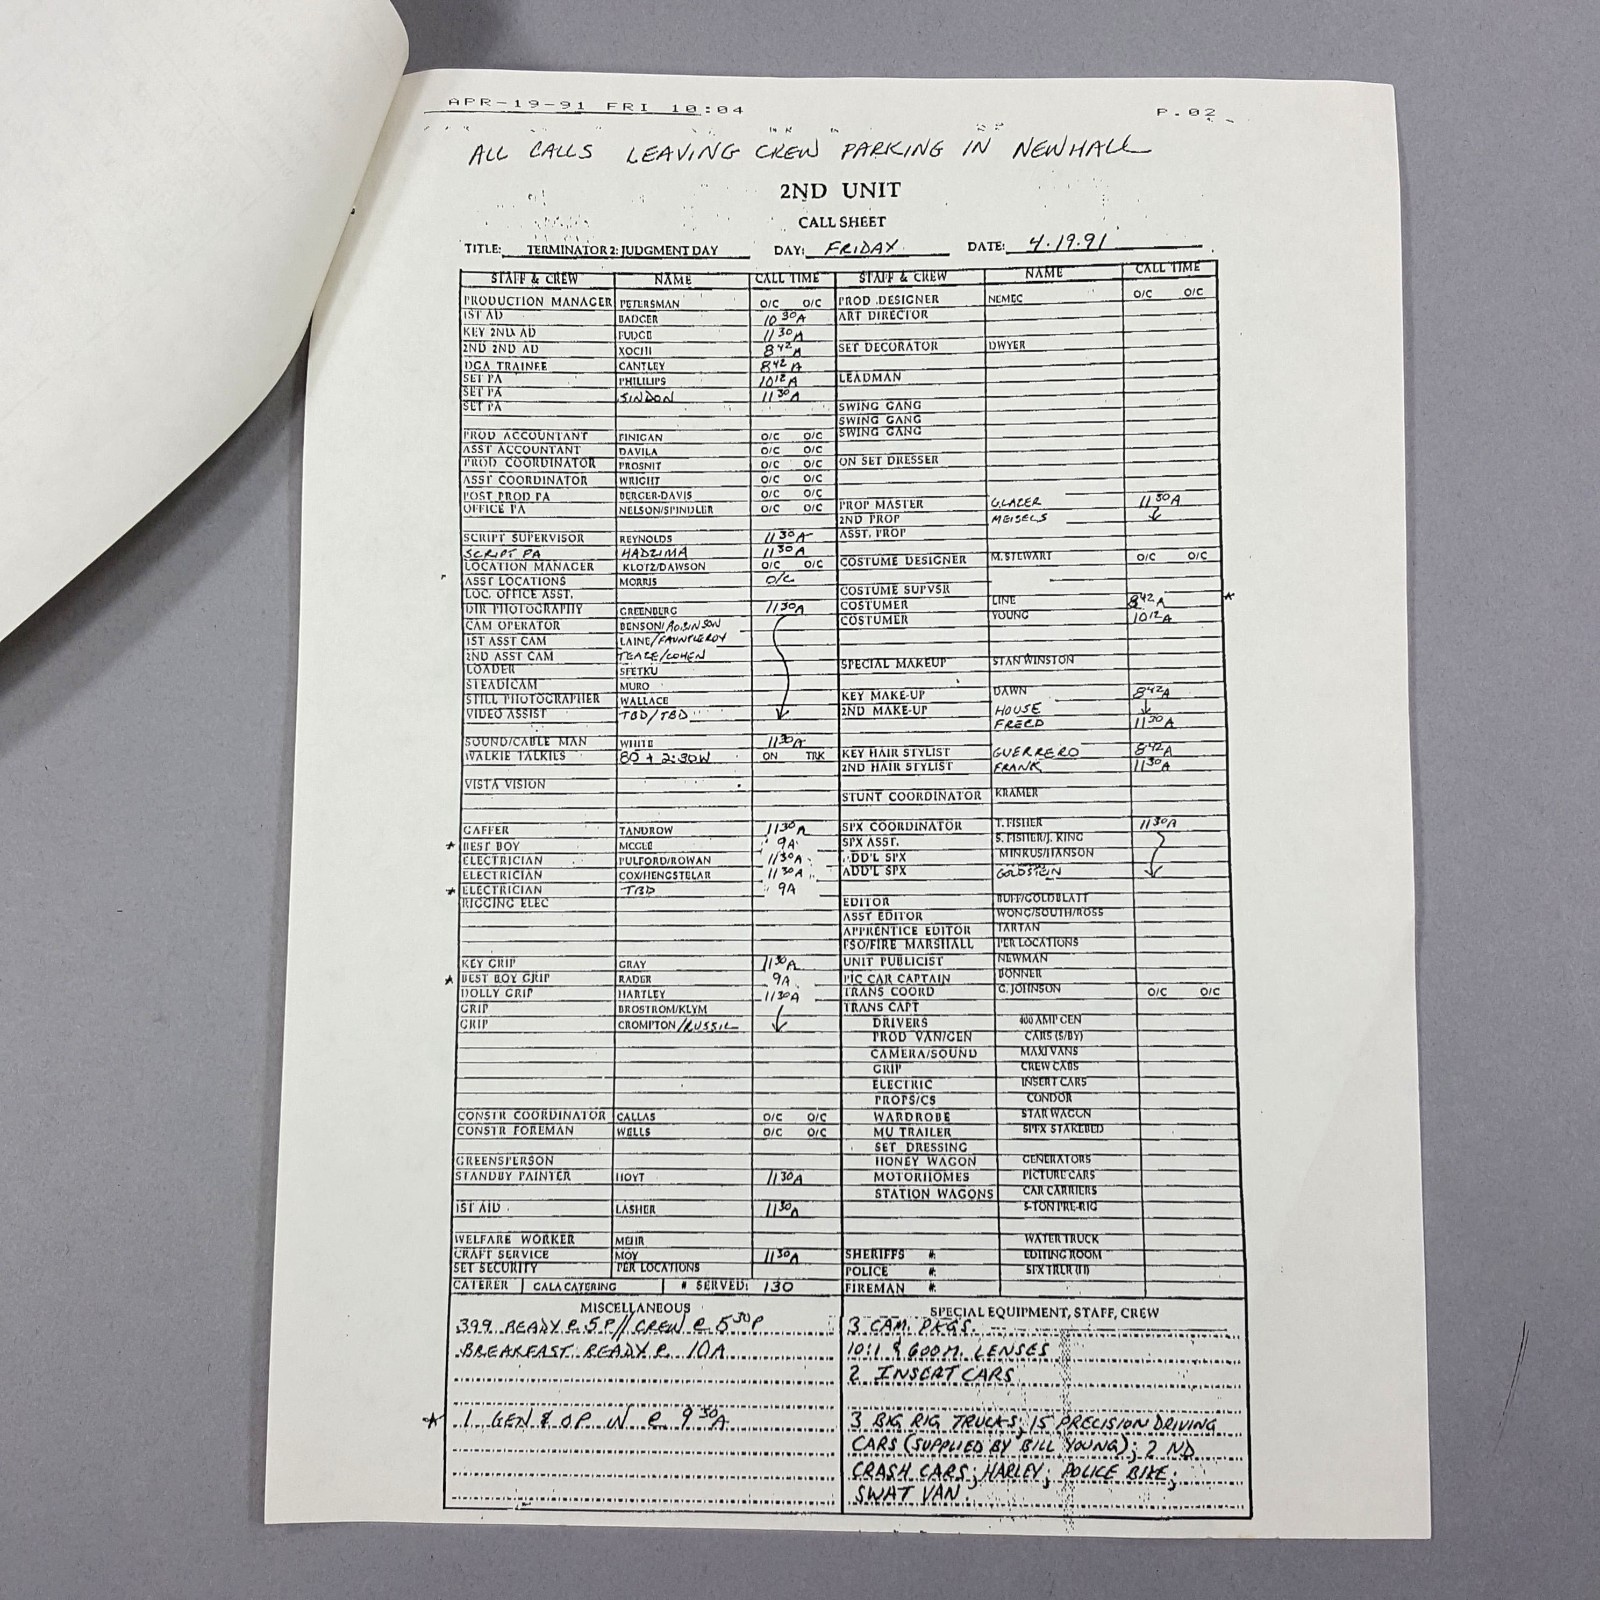 APR-19-91 FRI 10:04 P.02
ALL CALLS LEAVING CREW PARKING IN NEWHALL
2ND UNIT
CALL SHEET
TITLE: TERMINATOR 2: JUDGMENT DAY DAY: FRIDAY DATE: 4.19.91
STAFF & CREW NAME CALL TIME
PRODUCTION MANAGER PETERSMAN O/C O/C
1ST AD BADGER 10 30 A
KEY 2ND AD FUDGE 11 30 A
2ND 2ND AD XOCHI 8 42 A
DGA TRAINEE CANTLEY 8 42 A
SET PA PHILILIPS 10 12 A
SET PA SINDON 11 30 A
SET PA
PROD ACCOUNTANT FINIGAN O/C O/C
ASST ACCOUNTANT DAVILA O/C O/C
PROD COORDINATOR PROSNIT O/C O/C
ASST COORDINATOR WRIGHT O/C O/C
POST PROD PA BERGER-DAVIS O/C O/C
OFFICE PA NELSON/SPINDLER O/C O/C
SCRIPT SUPERVISOR REYNOLDS 11 30 A
SCRIPT PA HADZIMA 11 30 A
LOCATION MANAGER KLOTZ/DAWSON O/C O/C
ASST LOCATIONS MORRIS O/C
LOC. OFFICE ASST.
DIR PHOTOGRAPHY GREENBERG 11 30 A
CAM OPERATOR BENSON/ROBINSON
1ST ASST CAM LAINE/FAUNTLEROY
2ND ASST CAM TEAZE/COHEN
LOADER SFETKU
STEADICAM MURO
STILL PHOTOGRAPHER WALLACE
VIDEO ASSIST TBD/TBD
SOUND/CABLE MAN WHITE 11 30 A
WALKIE TALKIES 80 + 2:30W ON TRK
VISTA VISION
GAFFER TANDROW 11 30 A
* BEST BOY MCGLE 9A
ELECTRICIAN PULFORD/ROWAN 11 30 A
ELECTRICIAN COX/HENGSTELAR 11 30 A
* ELECTRICIAN TBD 9A
RIGGING ELEC
KEY GRIP GRAY 11 30 A
* BEST BOY GRIP RADER 9A
DOLLY GRIP HARTLEY 11 30 A
GRIP BROSTROM/KLYM
GRIP CROMPTON/RUSSIL
CONSTR COORDINATOR CALLAS O/C O/C
CONSTR FOREMAN WELLS O/C O/C
GREENSPERSON
STANDBY PAINTER HOYT 11 30 A
1ST AID LASHER 11 30 A
WELFARE WORKER MEHR
CRAFT SERVICE MOY 11 30 A
SET SECURITY PER LOCATIONS
CATERER GALA CATERING # SERVED: 130
STAFF & CREW NAME CALL TIME
PROD DESIGNER NEMEC O/C O/C
ART DIRECTOR
SET DECORATOR DWYER
LEADMAN
SWING GANG
SWING GANG
SWING GANG
ON SET DRESSER
PROP MASTER GLAZER 11 30 A
2ND PROP MEISELS
ASST. PROP
COSTUME DESIGNER M. STEWART O/C O/C
COSTUME SUPVSR
COSTUMER LINE 8 42 A *
COSTUMER YOUNG 10 12 A
SPECIAL MAKEUP STAN WINSTON
KEY MAKE-UP DAWN 8 42 A
2ND MAKE-UP HOUSE
FREED 11 30 A
KEY HAIR STYLIST GUERRERO 8 42 A
2ND HAIR STYLIST FRANK 11 30 A
STUNT COORDINATOR KRAMER
SPX COORDINATOR T. FISHER 11 30 A
SPX ASST. S. FISHER/J. KING
ADD'L SPX MINKUS/HANSON
ADD'L SPX GOLDSTEIN
EDITOR BUFF/GOLDBLATT
ASST EDITOR WONG/SOUTH/ROSS
APPRENTICE EDITOR TARTAN
FSO/FIRE MARSHALL PER LOCATIONS
UNIT PUBLICIST NEWMAN
PIC CAR CAPTAIN BONNER
TRANS COORD G. JOHNSON O/C O/C
TRANS CAPT
DRIVERS 400 AMP GEN
PROD VAN/GEN CARS (S/BY)
CAMERA/SOUND MAXI VANS
GRIP CREW CABS
ELECTRIC INSERT CARS
PROPS/CS CONDOR
WARDROBE STAR WAGON
MU TRAILER SPFX STAKEBED
SET DRESSING
HONEY WAGON GENERATORS
MOTORHOMES PICTURE CARS
STATION WAGONS CAR CARRIERS
5-TON PRE-RIG
WATER TRUCK
SHERIFFS # EDITING ROOM
POLICE # SFX TRLR (II)
FIREMAN #
MISCELLANEOUS
399 READY @ 5P // CREW @ 5 30 P
BREAKFAST READY @ 10A
* 1 GEN & OP IN @ 9 30 A
SPECIAL EQUIPMENT, STAFF, CREW
3 CAM. PKGS.
10:1 & 600M. LENSES
2 INSERT CARS
3 BIG RIG TRUCKS; 15 PRECISION DRIVING
CARS (SUPPLIED BY BILL YOUNG); 2 ND
CRASH CARS; HARLEY; POLICE BIKE;
SWAT VAN